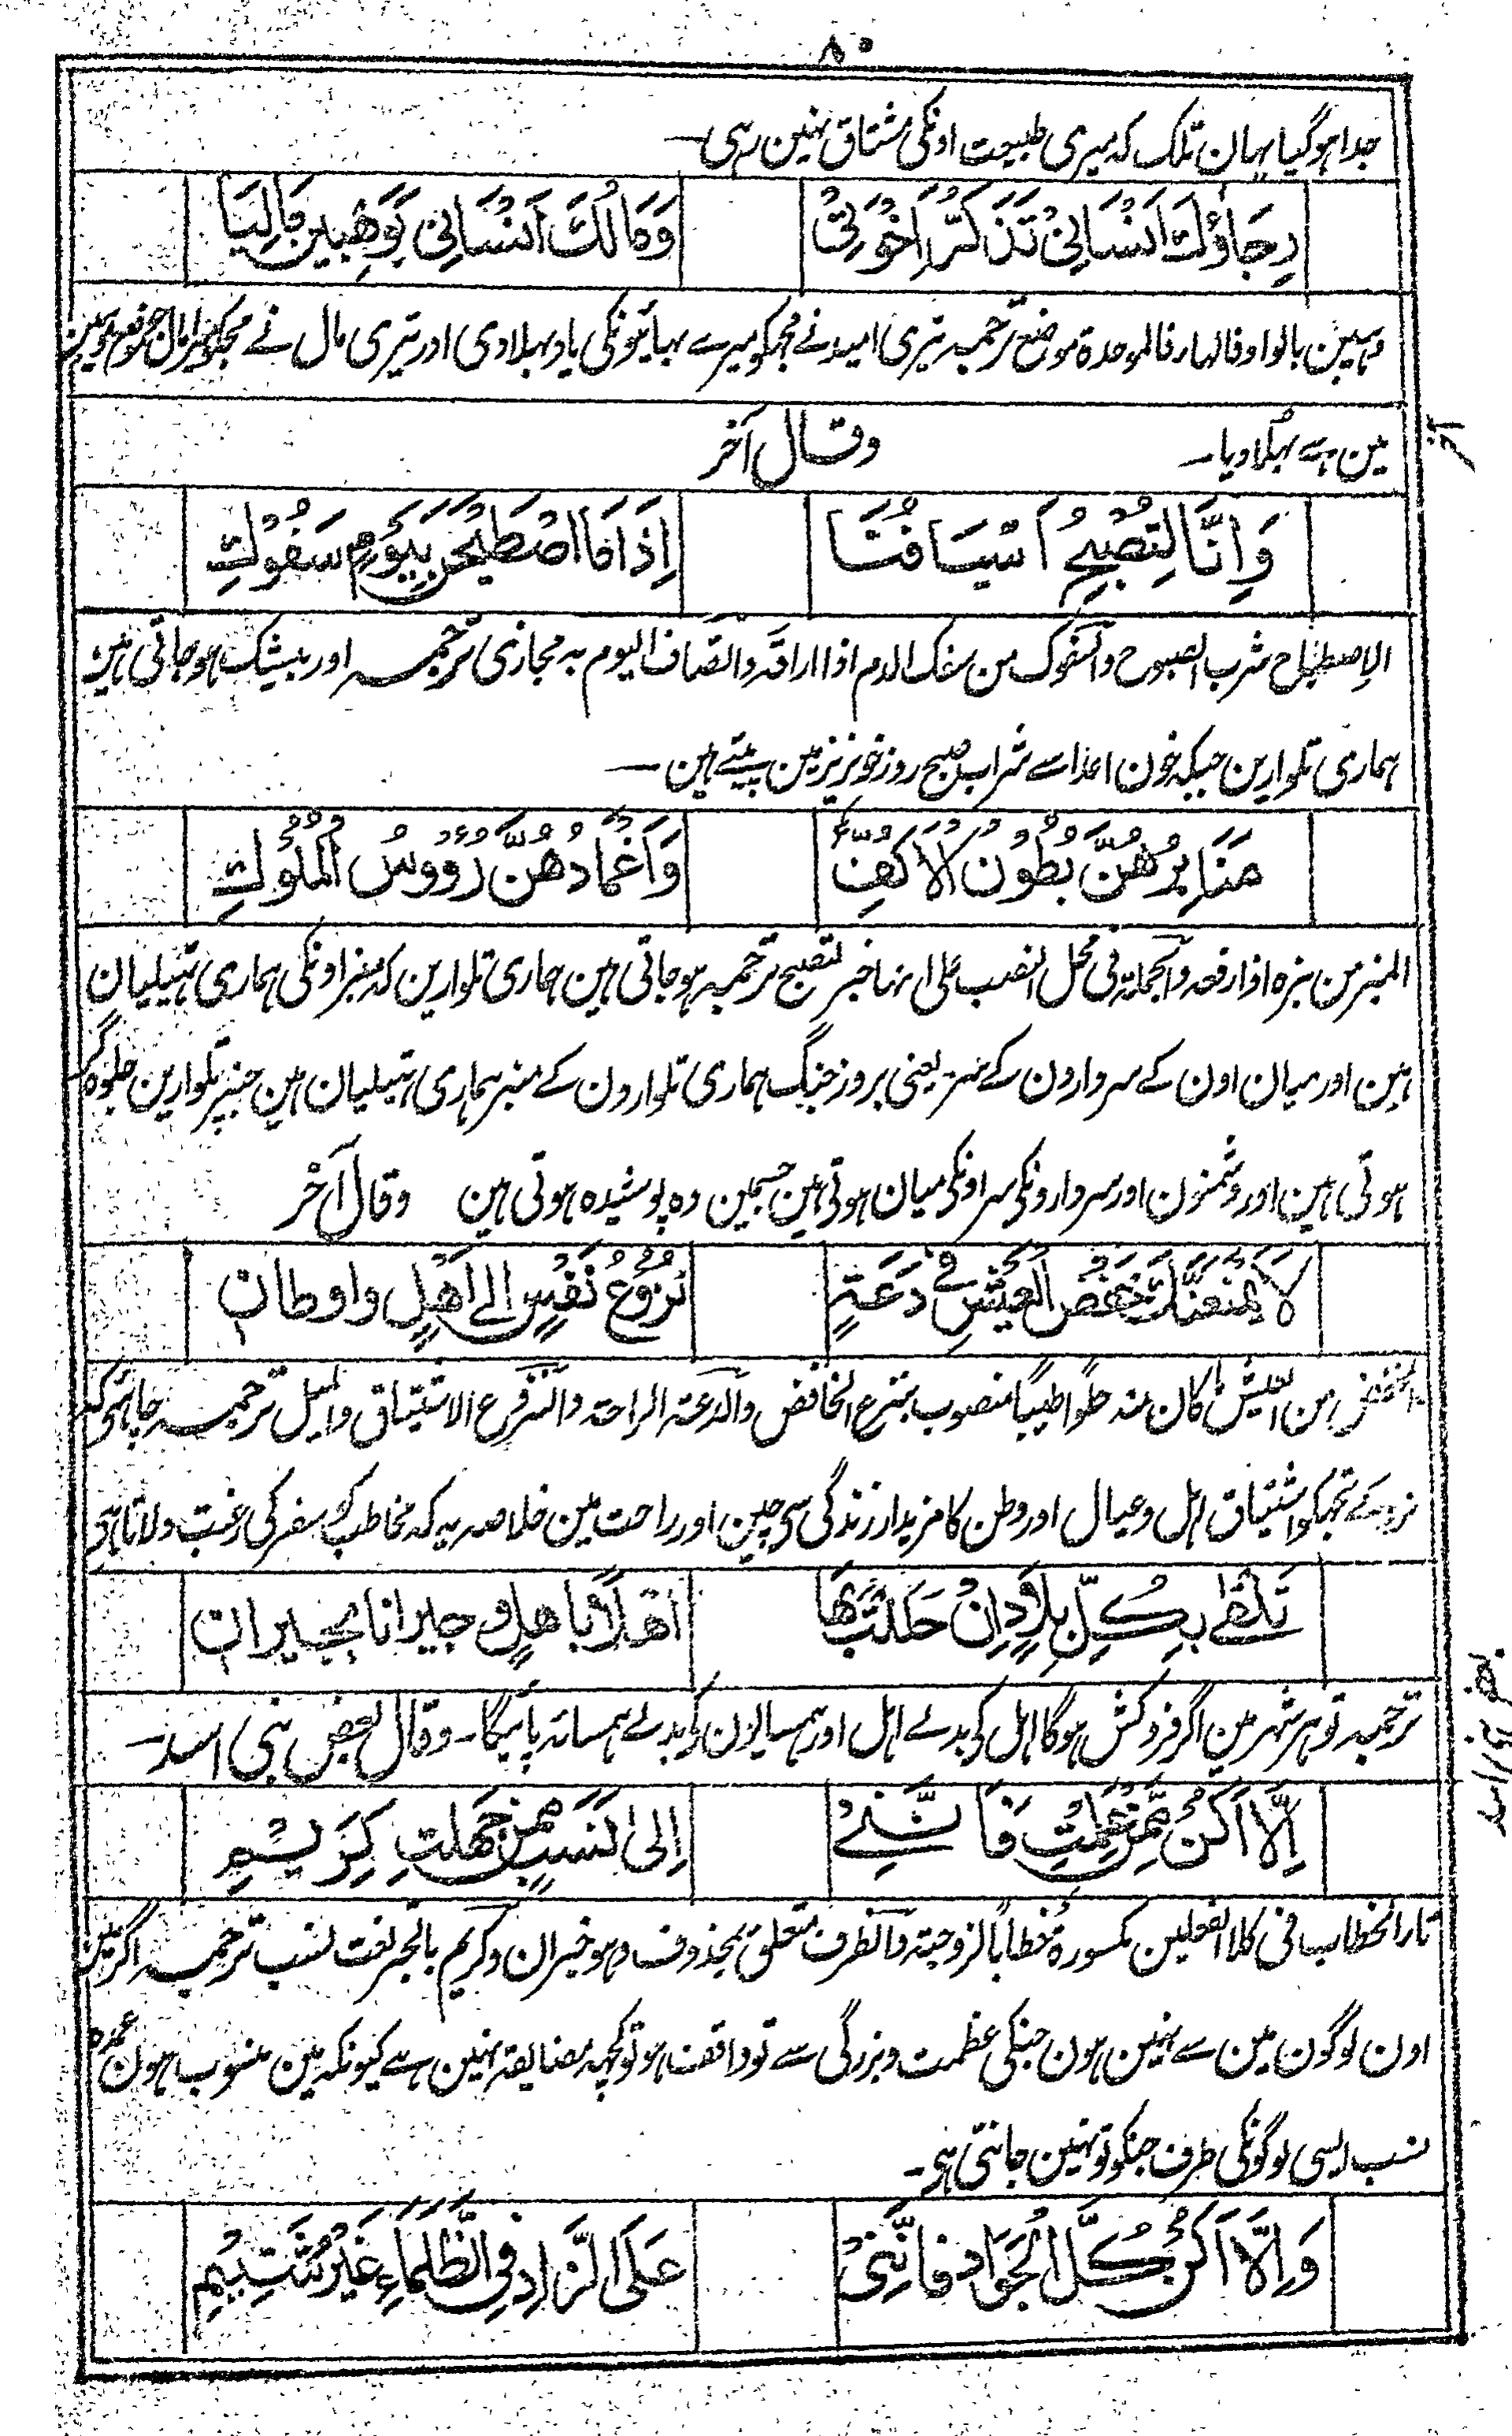 ۸۰
جدا ہوگیا یہان تلک کہ میری طبیعت اونکی مشتاق نہین رہی ــ
رِجَاؤُكَ اَنْسَانِیْ تَذَكُّرَ اِخْوَتِیْ وَمَالُكَ اَنْسَانِی بِوَهْبِيْنَ مَالِيَا
وہبین بالواو فالہاء فالموحدۃ موضع ترجمہ تیری امید نے مجھکو میرے بہائیونکی یاد بہلادی اور تیری مال نے مجکو میرا مال جو موضع وہبین
مین ہے بہلا دیا ــ وقال آخر
وَاِنَّا لَتُصْبِحُ اَسْيَافُنَا اِذَا مَا اصْطَبَحْنَ بِيَوْمٍ سَفُوْكِ
الاصطباح شرب الصبوح والسفوک من سفک الدم اذا اراقہ واتصاف الیوم بہ مجازی ترجمہ اور بیشک ہو جاتی ہین
ہماری تلوارین جبکہ خون اعدا سے شراب صبح روز خونریز مین پیتے ہین ــ
مَنَابِرُهُنَّ بُطُوْنُ الْاَكُفِّ وَاَغْمَادُهُنَّ رُؤُوْسُ الْمُلُوْكِ
المنبر من نبرہ اذا رفعہ والجملۃ فی محل النصب علی انہا خبر لتصبح ترجمہ ہو جاتی ہین ہماری تلوارین کہ منبر اونکی ہماری ہتیلیان
ہین اور میان اون کے سردارون کے سر یعنی بروز جنگ ہماری تلوارون کے منبر ہماری ہتیلیان ہین جنپر تلوارین جلوہ گر
ہوتی ہین اور دشمنون اور سردارونکی سر اونکی میان ہوتی ہین جسمین وہ پوشیدہ ہوتی ہین وقال آخر
لَا يَمْنَعَنَّكَ خَفْضَ الْعَيْشِ فِیْ دَعَةٍ نُزُوْعُ نَفْسٍ اِلٰى اَهْلٍ واوطان
الخفض من العیش ما کان منہ حلوا طیبا منصوب بنزع الخافض والدعۃ الراحۃ والنزوع الاشتیاق والمیل ترجمہ چاہئی کہ
نروکے تجہکو اشتیاق اہل و عیال اور وطن کا مزیدار زندگی سی چین اور راحت مین خلاصہ یہ کہ مخاطب کو سفر کی رغبت دلاتا ہی
تَلْقٰی بِكُلِّ بِلَادٍ اِنْ حَلَلْتَ بِهَا اَهْلًا بِاَهْلٍ و جيرانا بجيران
ترجمہ تو ہر شہر مین اگر فروکش ہوگا اہل کی بدلے اہل اور ہمسایون کی بدلے ہمسائہ پائیگا ــ وقال بعض بنی اسد ــ
اِلَّا اَكُنْ مِمَّنْ عَلِمْتِ فَاِنَّنِیْ اِلٰى نَسَبٍ مِمَّنْ جَهِلْتِ كَرِيْمِ
تاء الخطاب فی کلا الفعلین مکسورۃ خطابا لزوجتہ والظرف متعلق بمحذوف وہو خبر ان وکریم بالجر نعت نسب ترجمہ اگر مین
اون لوگون مین سے نہین ہون جنکی عظمت و بزرگی سے تو واقف ہو تو کچہ مضایقہ نہین ہے کیونکہ مین منسوب ہون عمدہ
نسب ایسی لوگونکی طرف جنکو تو نہین جانتی ہی ــ
وَاِلَّا اَكُنْ كُلَّ الْجَوَادِ فَاِنَّنِیْ عَلَى الزَّادِ فِی الظَّلْمَاءِ غَيْرُ شَتِيْمِ